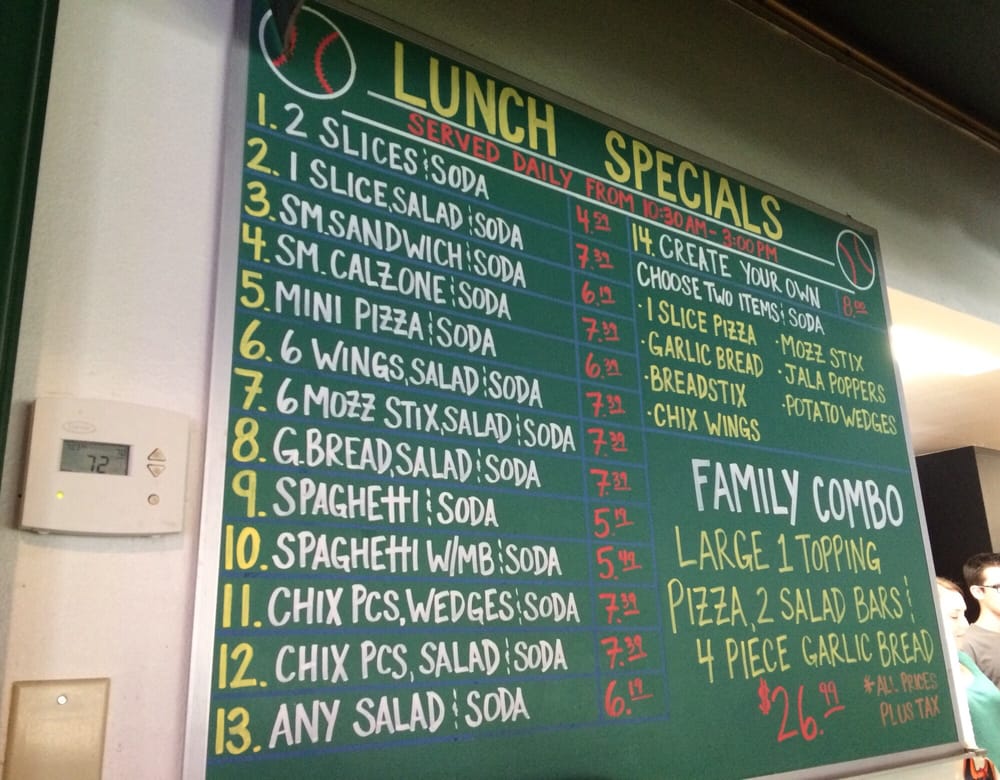 LUNCH SPECIALS
SERVED DAILY FROM 10:30AM-3:00PM
1. 2 SLICES & SODA 4.59
2. 1 SLICE, SALAD & SODA 7.39
3. SM. SANDWICH & SODA 6.19
4. SM. CALZONE & SODA 7.39
5. MINI PIZZA & SODA 6.39
6. 6 WINGS, SALAD & SODA 7.39
7. 6 MOZZ STIX, SALAD & SODA 7.39
8. G. BREAD, SALAD & SODA 7.39
9. SPAGHETTI & SODA 5.19
10. SPAGHETTI W/MB & SODA 5.49
11. CHIX PCS, WEDGES & SODA 7.39
12. CHIX PCS, SALAD & SODA 7.39
13. ANY SALAD & SODA 6.19
14. CREATE YOUR OWN 8.00
CHOOSE TWO ITEMS & SODA
· 1 SLICE PIZZA
· GARLIC BREAD
· BREADSTIX
· CHIX WINGS
· MOZZ STIX
· JALA POPPERS
· POTATO WEDGES
FAMILY COMBO
LARGE 1 TOPPING
PIZZA, 2 SALAD BARS &
4 PIECE GARLIC BREAD
$26.99
*ALL PRICES
PLUS TAX
72